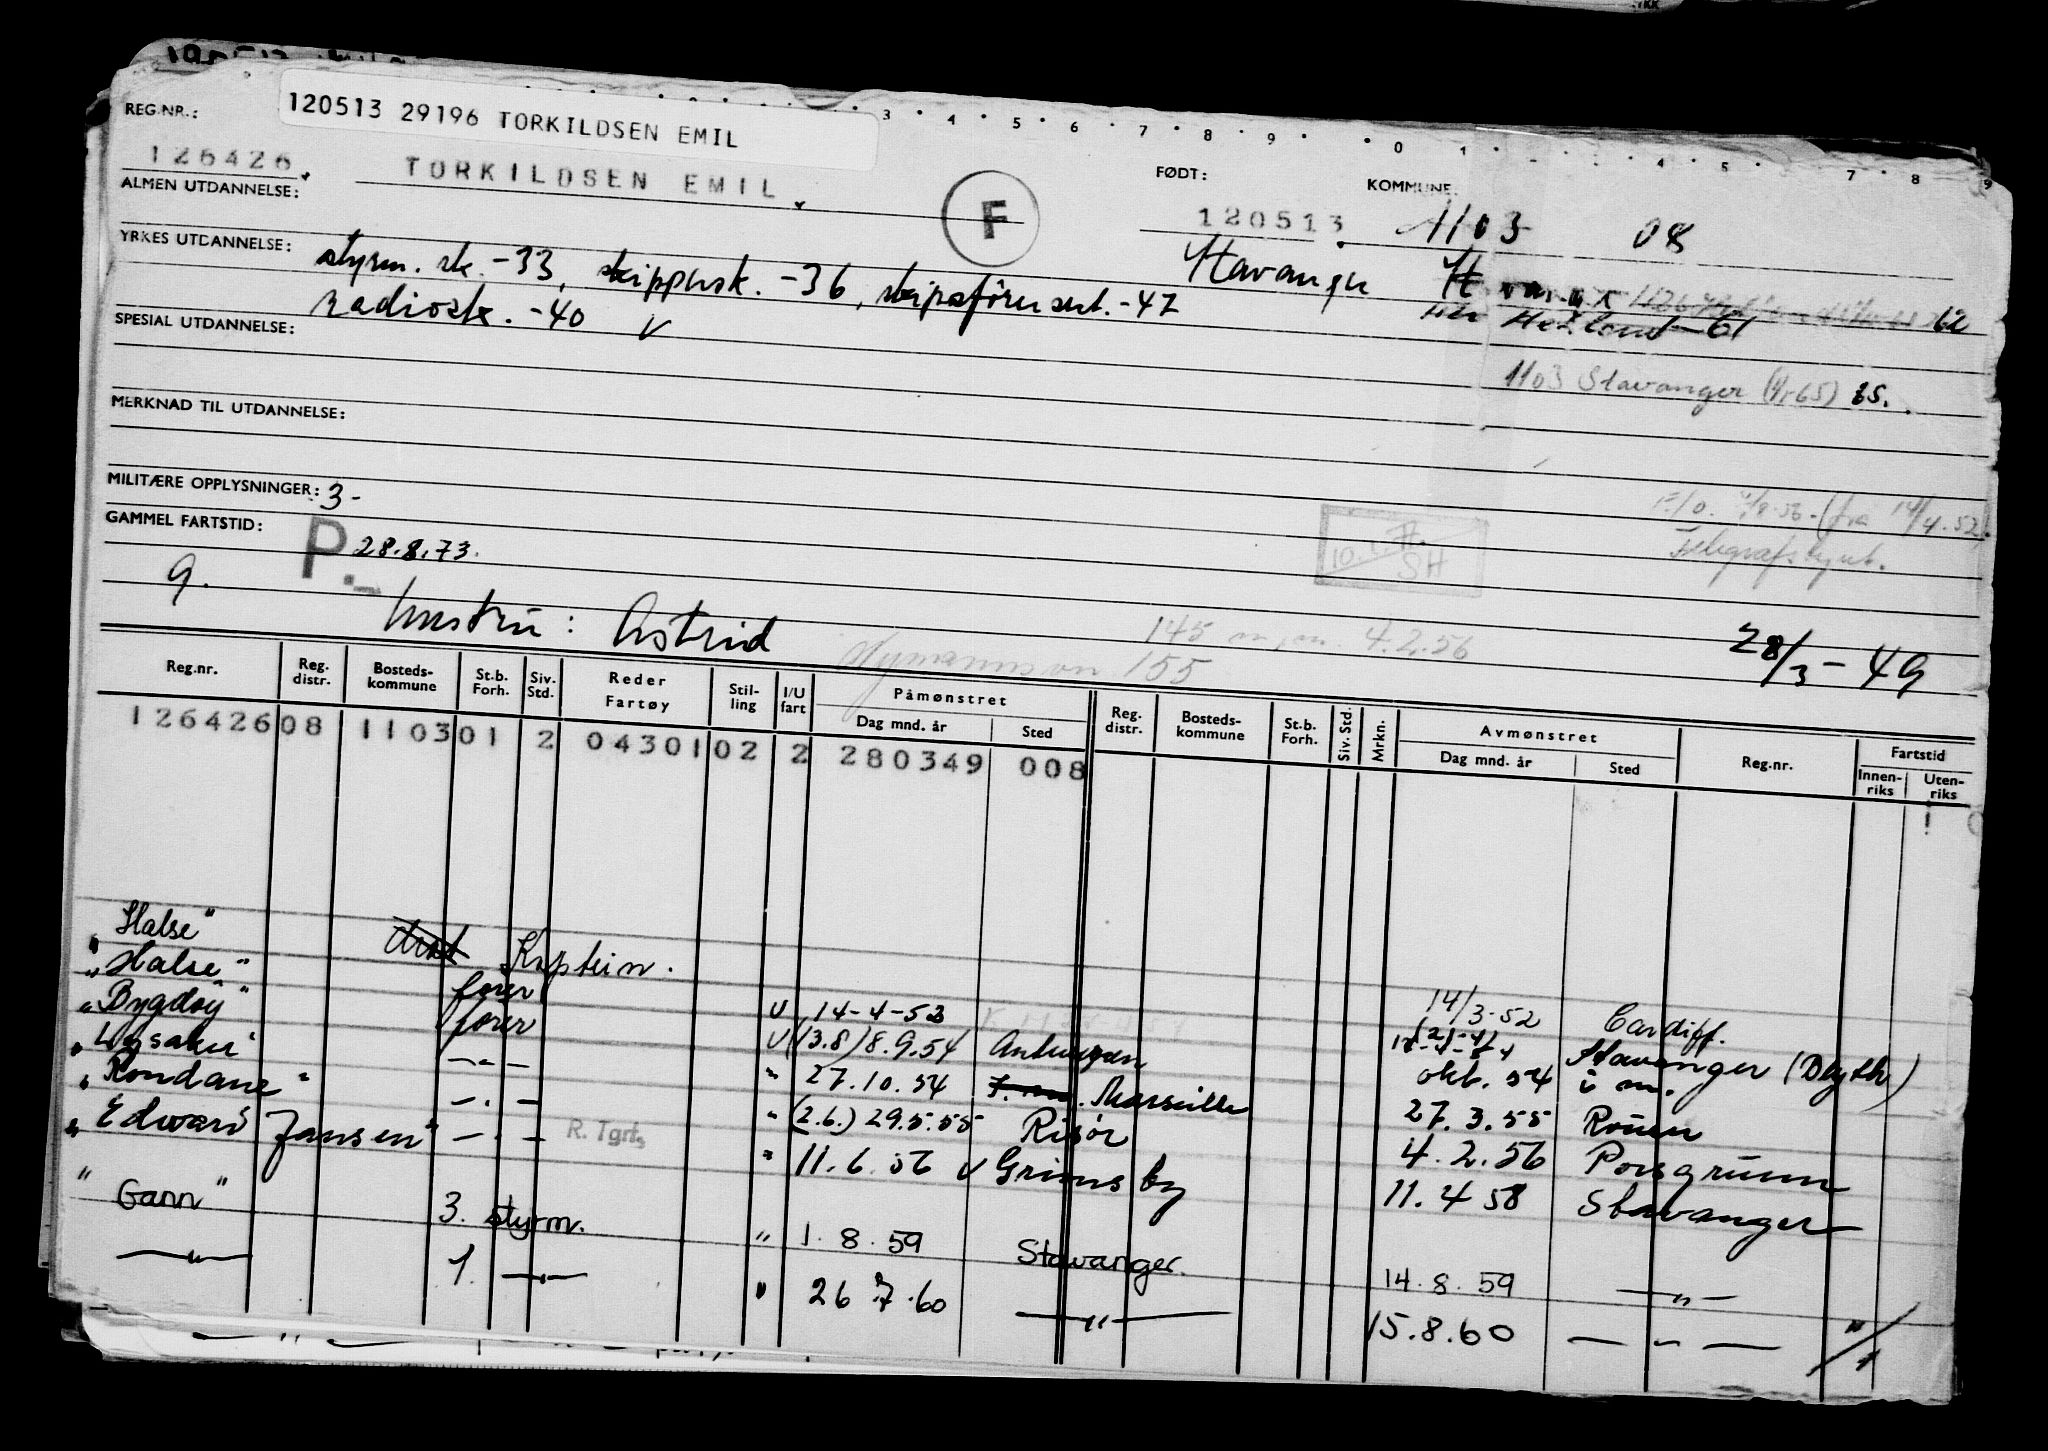 120513 29196 TORKILDSEN EMIL
REG.NR.:
126426. TORKILDSEN EMIL.
F
FØDT:
120513.
Stavanger
KOMMUNE:
1103 08
62
Hetland 61
1103 Stavanger (4/65) 65.
ALMEN UTDANNELSE:
YRKES UTDANNELSE: styrm. sk. -33, skippersk. -36, skipsførerutd. -47
radiosk. -40 V
SPESIAL UTDANNELSE:
MERKNAD TIL UTDANNELSE:
MILITÆRE OPPLYSNINGER: 3-
GAMMEL FARTSTID: P. 28.8.73.
SH
F/O. 4/8-56 - (fra 14/4.52)
9.
hustru: Astrid
145 m.m. 4.2.56
155
28/3 - 49
Reg.nr. Reg. distr. Bosteds- kommune St.b. Forh. Siv. Std. Reder Fartøy Stil- ling I/U fart Påmønstret Dag mnd. år Sted Reg. distr. Bosteds- kommune St.b. Forh. Siv. Std. Mrkn. Avmønstret Dag mnd. år Sted Reg.nr. Fartstid Innen- riks Uten- riks
126426 08 1103 01 2 04301 02 2 280349 008
"Halse" Kaptein. 14/3-52 Cardiff.
"Halse" fører V 14-4-53 (21-4) Stavanger (Blyth)
"Bygdøy" fører V (13.8) 8.9.54 Antwerpen okt. 54 i m.
"Lysaker" —"— " 27.10.54 Marseille 27.3.55 Rouen
"Rondane" —"— " (2.6.) 29.5.55 Risør 4.2.56 Porsgrunn
"Edward Jansen" —"— R. Tgrt. " 11.6.56 V Grimsby 11.4 58 Stavanger
"Gann" 3. styrm. " 1.8.59 Stavanger. 14.8.59 —"—
—"— 1. —"— " 26.7.60 —"— 15.8.60 —"—